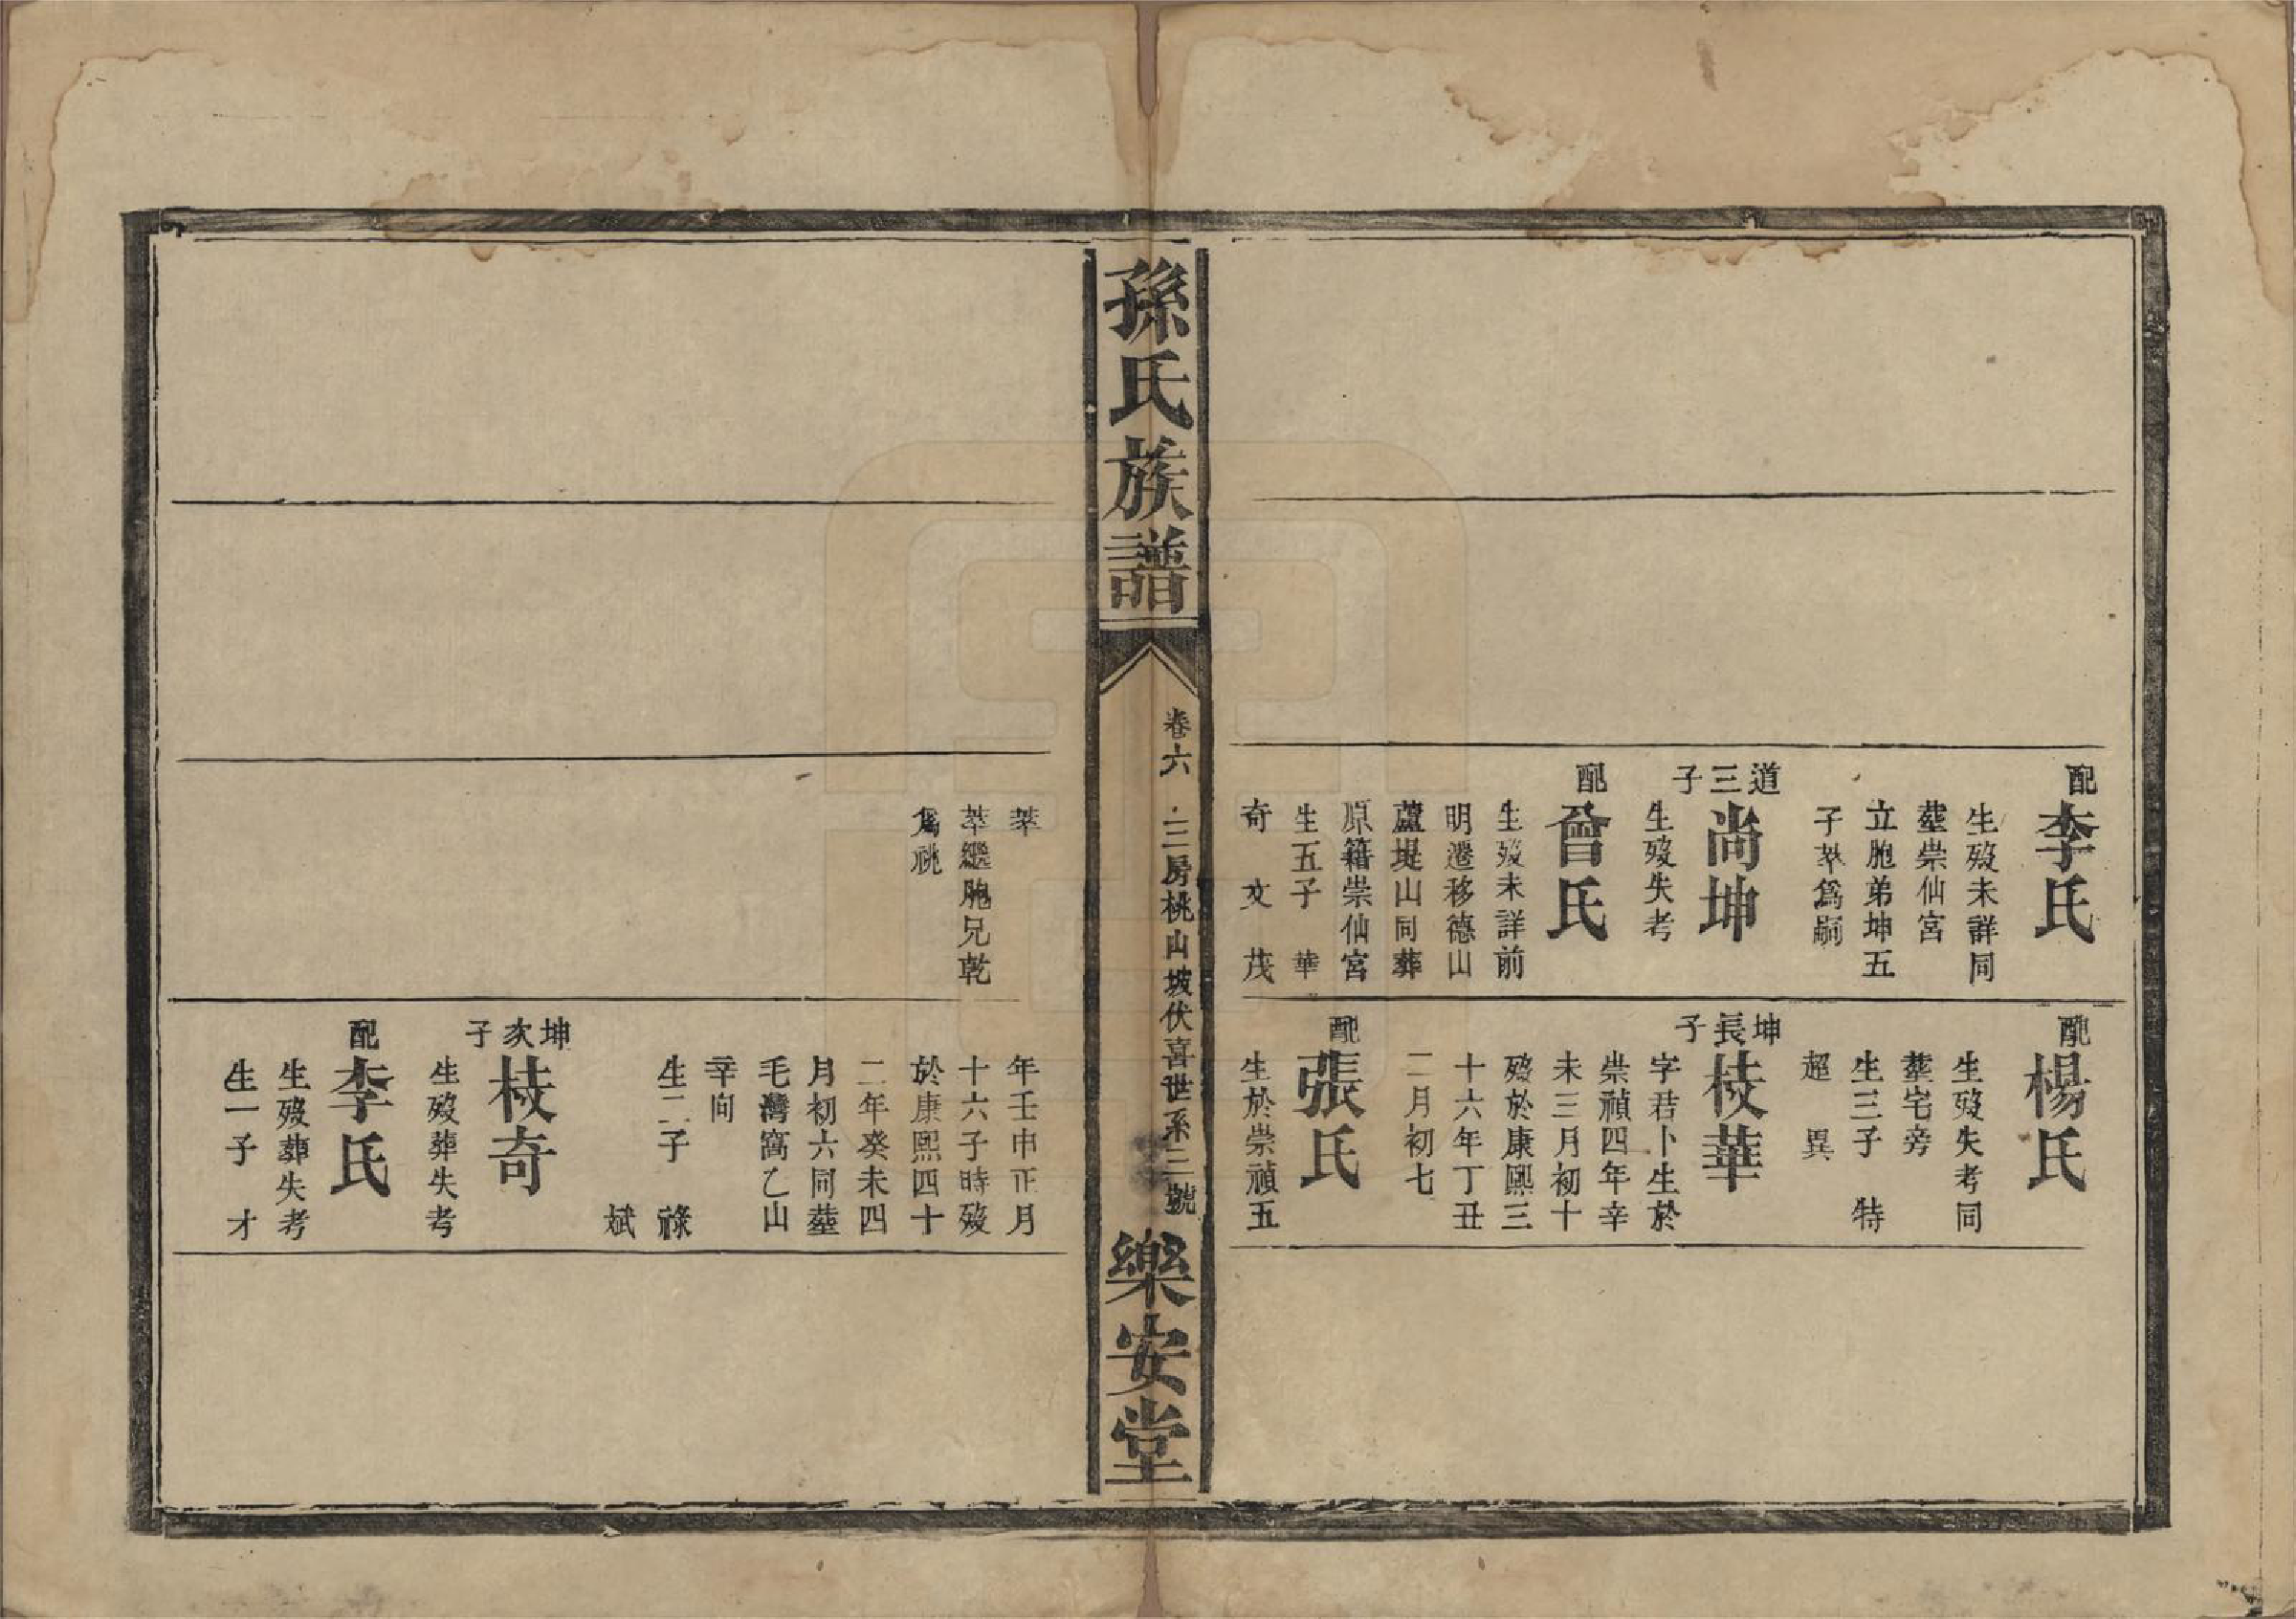 配
李氏
生歿未詳同
塟崇仙宮
立胞弟坤五
子萃爲嗣
道三子
尚坤
生歿失考
配
曾氏
生歿未詳前
明遷移德山
蘆堤山同葬
原籍崇仙宮
生五子 華
奇 文 茂
配
楊氏
生歿失考同
塟宅旁
生三子 特
超 異
坤長子
枝華
字君卜生於
崇禎四年辛
未三月初十
歿於康熙三
十六年丁丑
二月初七
配
張氏
生於崇禎五
孫氏族譜
卷六
二房桃山坡伏喜世系三號
樂安堂
萃
萃繼胞兄乾
爲祧
年壬申正月
十六子時歿
於康熙四十
二年癸未四
月初六同塟
毛灣窩乙山
辛向
生二子 祿
斌
坤次子
枝奇
生歿葬失考
配
李氏
生歿葬失考
生一子 才